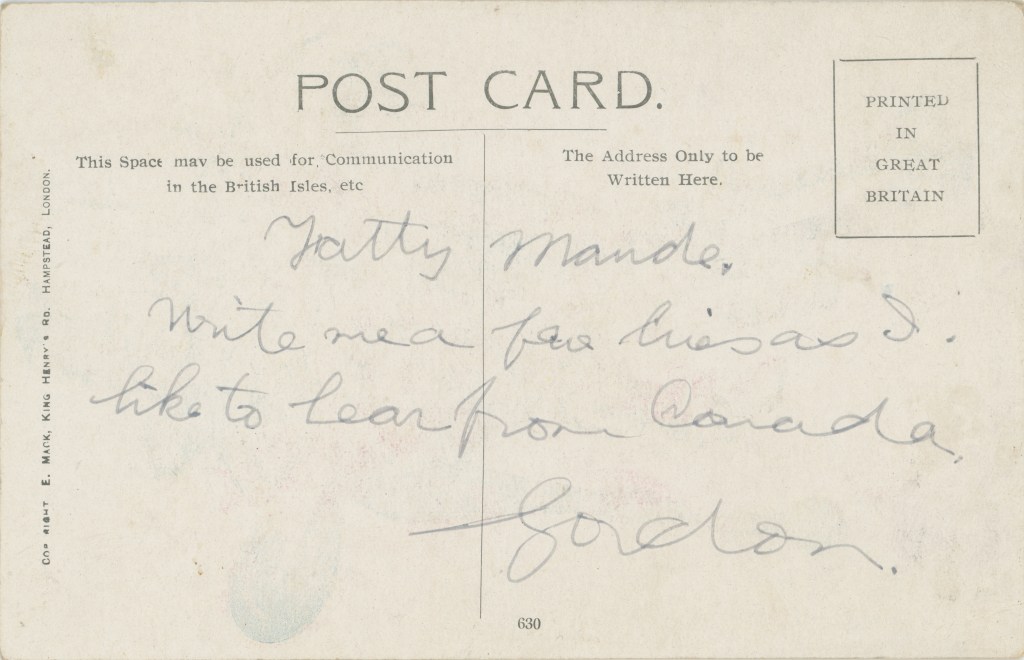 POST CARD.
This Space may be used for Communication
in the British Isles, etc
The Address Only to be
Written Here.
PRINTED
IN
GREAT
BRITAIN
COPYRIGHT E. MACK, KING HENRY'S RD. HAMPSTEAD, LONDON.
Fatty Maude.
Write me a few lines as I.
like to hear from Canada.
Gordon.
630